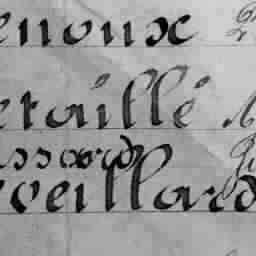 enoux
etaillé
ssard
veillard